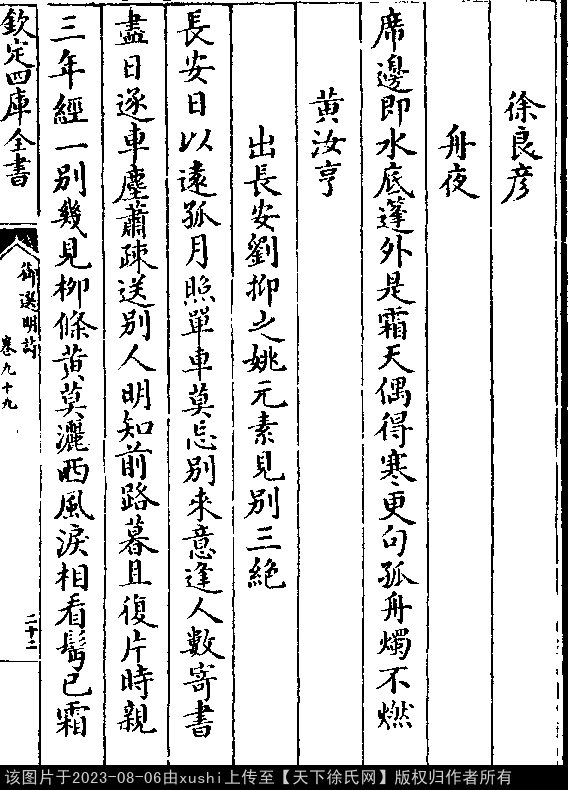 徐良彦
舟夜
席邊即水底蓬外是霜天偶得寒更句孤舟燭不燃
黄汝亨
出長安劉抑之姚元素見别三絶
長安日以遠孤月照單車莫忘别来意逢人數寄書
盡日逐車塵蕭疎送别人明知前路暮且復片時親
三年經一别幾見栁條黄莫灑西風淚相看鬂已霜
欽定四庫全書
御選明詩
卷九十九
二十二
该图片于2023-08-06由xushi上传至【天下徐氏网】版权归作者所有